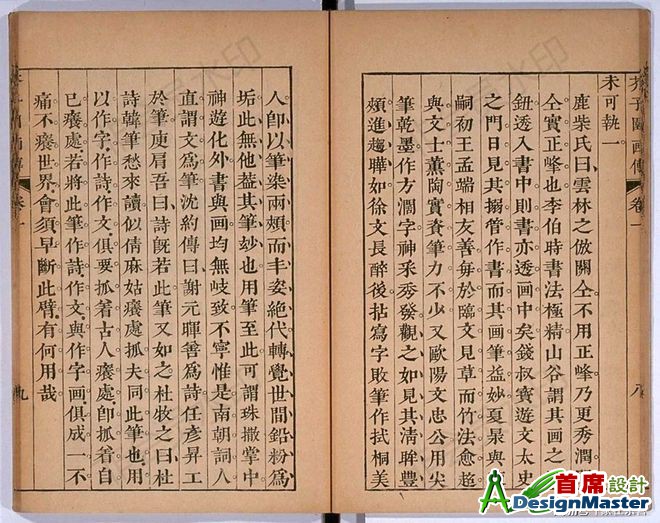 芥子園画傳 卷一 八
未可執一
鹿柴氏曰雲林之倣關仝不用正峰乃更秀潤
仝實正峰也李伯時書法極精山谷謂其画之
鈕透入書中則書亦透画中矣錢叔寶遊文太史
之門日見其搦管作書而其画筆益妙夏杲與
嗣初王孟端相友善每於臨文見草而竹法愈超
與文士薰陶實資筆力不少又歐陽文忠公用尖
筆乾墨作方濶字神采秀發觀之如見其清眸豐
頰進趨曄如徐文長醉後拈寫字敗筆作拭桐美
人卽以筆染兩頰而丰姿絕代轉覺世間鉛粉爲
垢此無他葢其筆妙也用筆至此可謂珠撒掌中
神遊化外書與画均無岐致不寧惟是南朝詞人
直謂文爲筆沈約傳曰謝元暉善爲詩任彥昇工
於筆庾肩吾曰詩旣若此筆又如之杜牧之曰杜
詩韓筆愁來讀似倩麻姑癢處抓夫同此筆也用
以作字作詩作文俱要抓着古人癢處卽抓着自
巳癢處若將此筆作詩作文與作字画俱成一不
痛不癢世界會須早斷此臂有何用哉
卷一 九
首席設計
DesignMaster